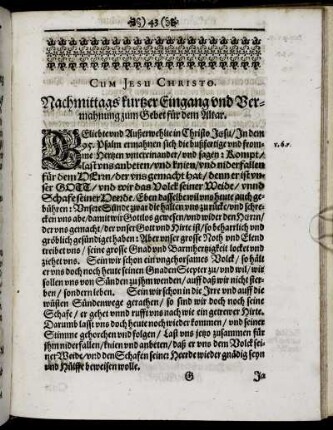 43
CUM JESU CHRISTO.
Nachmittags kurtzer Eingang vnd Ver-
mahnung zum Gebet für dem Altar.
GEliebte vnd Außerwehlte in Christo Jesu/ In dem
95. Psalm ermahnen sich die bußfertige vnd from-
me Hertzen vntereinander/ vnd sagen: Kompt/
last vns anbeten/ vnd knien/ vnd niderfallen
für dem HErrn/ der vns gemacht hat/ denn er ist vn-
ser GOtt/ vnd wir das Volck seiner Weide/ vnnd
Schafe seiner Heerde. Eben dasselbe wil vns heute auch ge-
bühren: Vnsere Sünde zwar die hallen vns zurück/ vnd schre-
cken vns abe/ damit wir Gottlos gewesen/ vnd wider den HErrn/
der vns gemacht/ der vnser Gott vnd Hirte ist/ so beharrlich vnd
gröblich gesündiget haben: Aber vnser grosse Noth vnd Elend
treibet vns/ seine grosse Gnad vnd Barmhertzigkeit locket vnd
ziehet vns. Sein wir schon ein vngehorsames Volck/ so hält
er vns doch noch heute seinen Gnaden Scepter zu/ vnd wil/ wir
sollen vns von Sünden zu ihm wenden/ auff daß wir nicht ster-
ben/ sondern leben. Sein wir schon in die Irre vnd auff die
wüsten Sündenwege gerathen/ so sind wir doch noch seine
Schafe/ er gehet vnnd rufft vns nach wie ein getrewer Hirte.
Darumb last vns doch heute noch wieder kommen/ vnd seiner
Stimme gehorchen vnd folgen/ Last vns jetzo zusammen für
ihm niderfallen/ knien vnd anbeten/ daß er vns dem Volck sei-
ner Weide/ vnd den Schafen seiner Heerde wieder gnädig seyn
vnd Hülffe beweisen wolle.
G Ja
v. 6. 7.